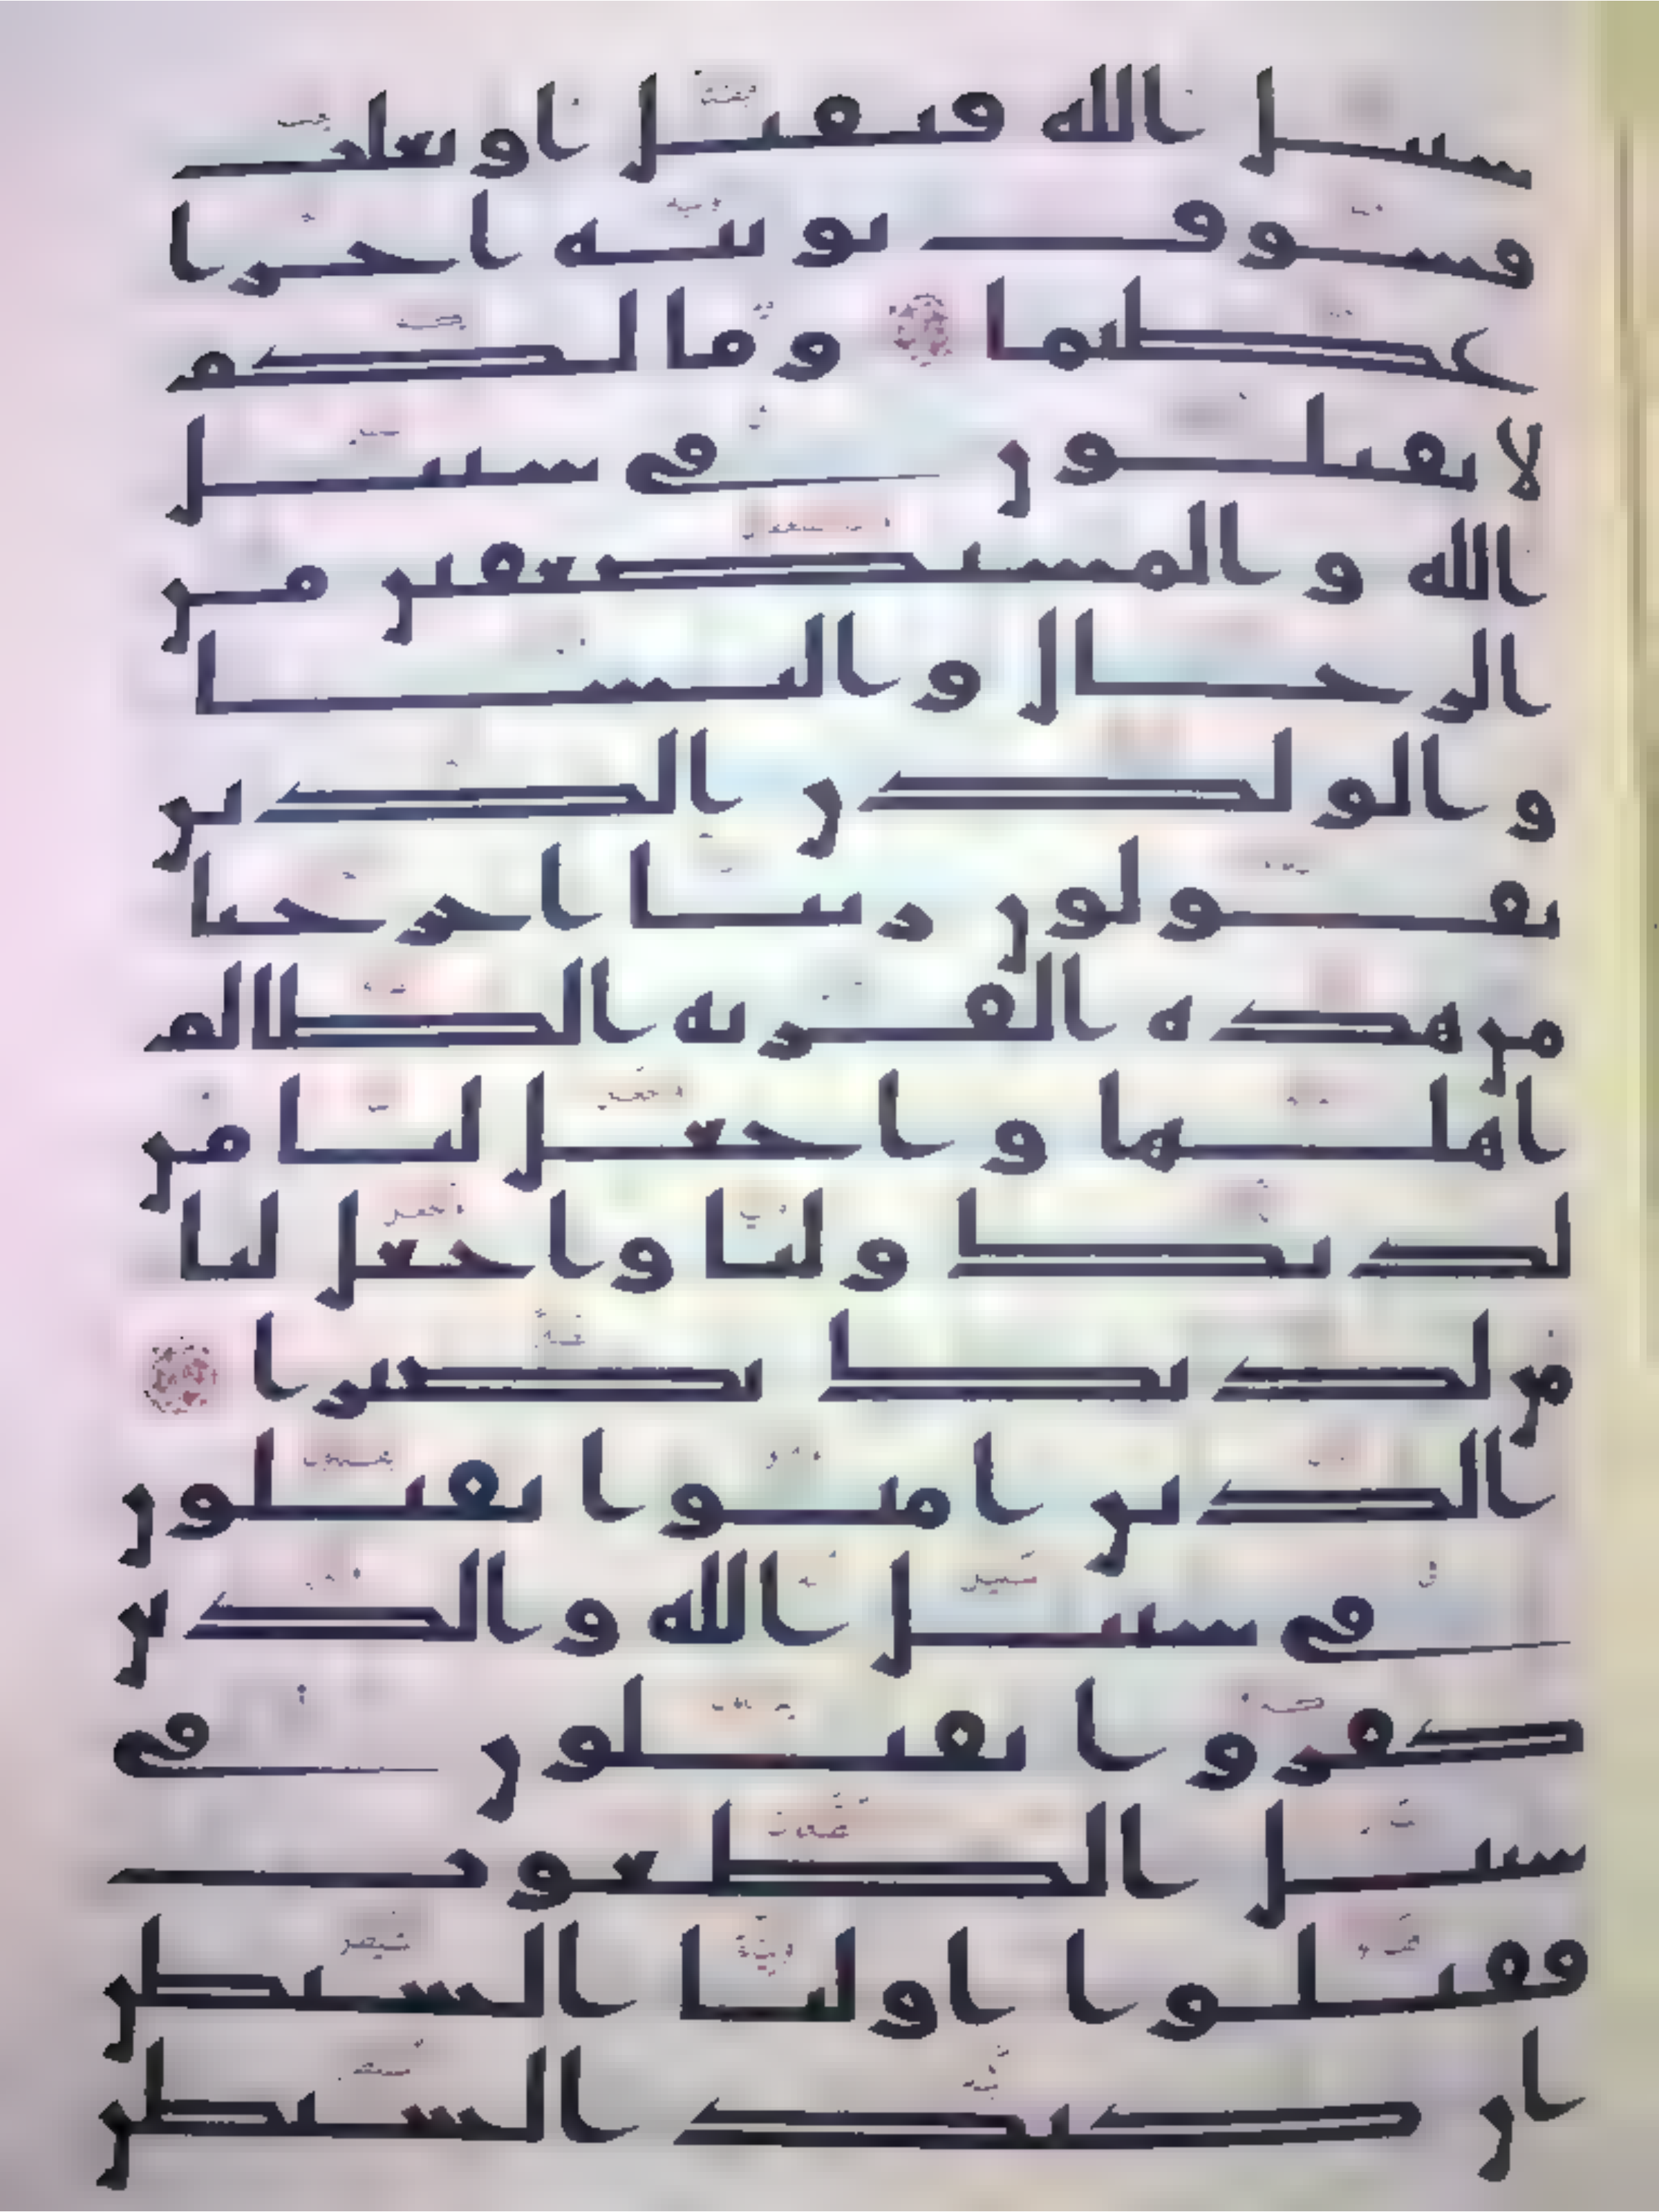 سبيل الله فيقتل او يغلب
فسوف نوتيه اجرا
عظيما وما لكم
لا تقتلون في سبيل
الله والمستضعفين من
الرجال والنسا
والولدن الذين
يقولون ربنا اخرجنا
من هذه القرية الظالم
اهلها واجعل لنا من
لدنك وليا واجعل لنا
من لدنك نصيرا
الذين امنوا يقتلون
في سبيل الله والذين
كفروا يقتلون في
سبيل الطغوت
فقتلوا اوليا الشيطن
ان كيد الشيطن